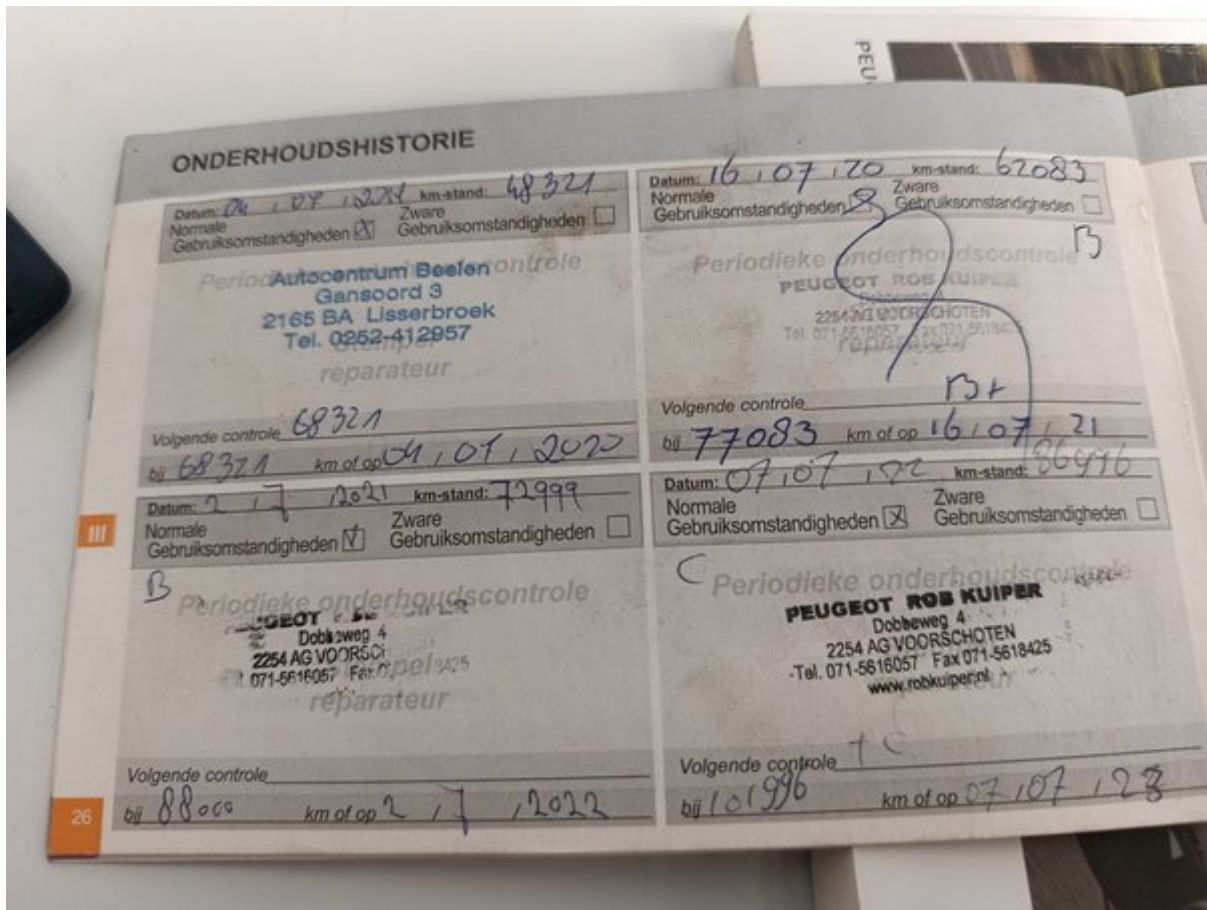 PEU
ONDERHOUDSHISTORIE
Datum: 04 , 07 , km-stand: 48321
Normale Gebruiksomstandigheden X Zware Gebruiksomstandigheden
Periodieke onderhoudscontrole
Autocentrum Beelen
Gansoord 3
2165 BA Lisserbroek
Tel. 0252-412957
Stempel
reparateur
Volgende controle 68321
bij 68321 km of op 04 , 07 , 2020
Datum: 2 , 7 , 2021 km-stand: 72999
Normale Gebruiksomstandigheden Zware Gebruiksomstandigheden
B
Periodieke onderhoudscontrole
Dobbeweg 4
2254 AG VOORSCH
071-5616057 Fax 8425
Stempel
reparateur
Volgende controle
bij 88000 km of op 2 , 7 , 2022
Datum: 16 , 07 , 20 km-stand: 62083
Normale Gebruiksomstandigheden Zware Gebruiksomstandigheden
B
Periodieke onderhoudscontrole
PEUGEOT ROB KUIPER
Dobbeweg 4
2254 AG VOORSCHOTEN
Tel. 071-5616057 Fax 071-5618425
reparateur
Volgende controle B+
bij 77083 km of op 16 , 07 , 21
Datum: 07 , 07 , 22 km-stand: 86996
Normale Gebruiksomstandigheden X Zware Gebruiksomstandigheden
C
Periodieke onderhoudscontrole
PEUGEOT ROB KUIPER
Dobbeweg 4
2254 AG VOORSCHOTEN
Tel. 071-5616057 Fax 071-5618425
www.robkuiper.nl
Volgende controle + C
bij 101996 km of op 07 , 07 , 23
III
26